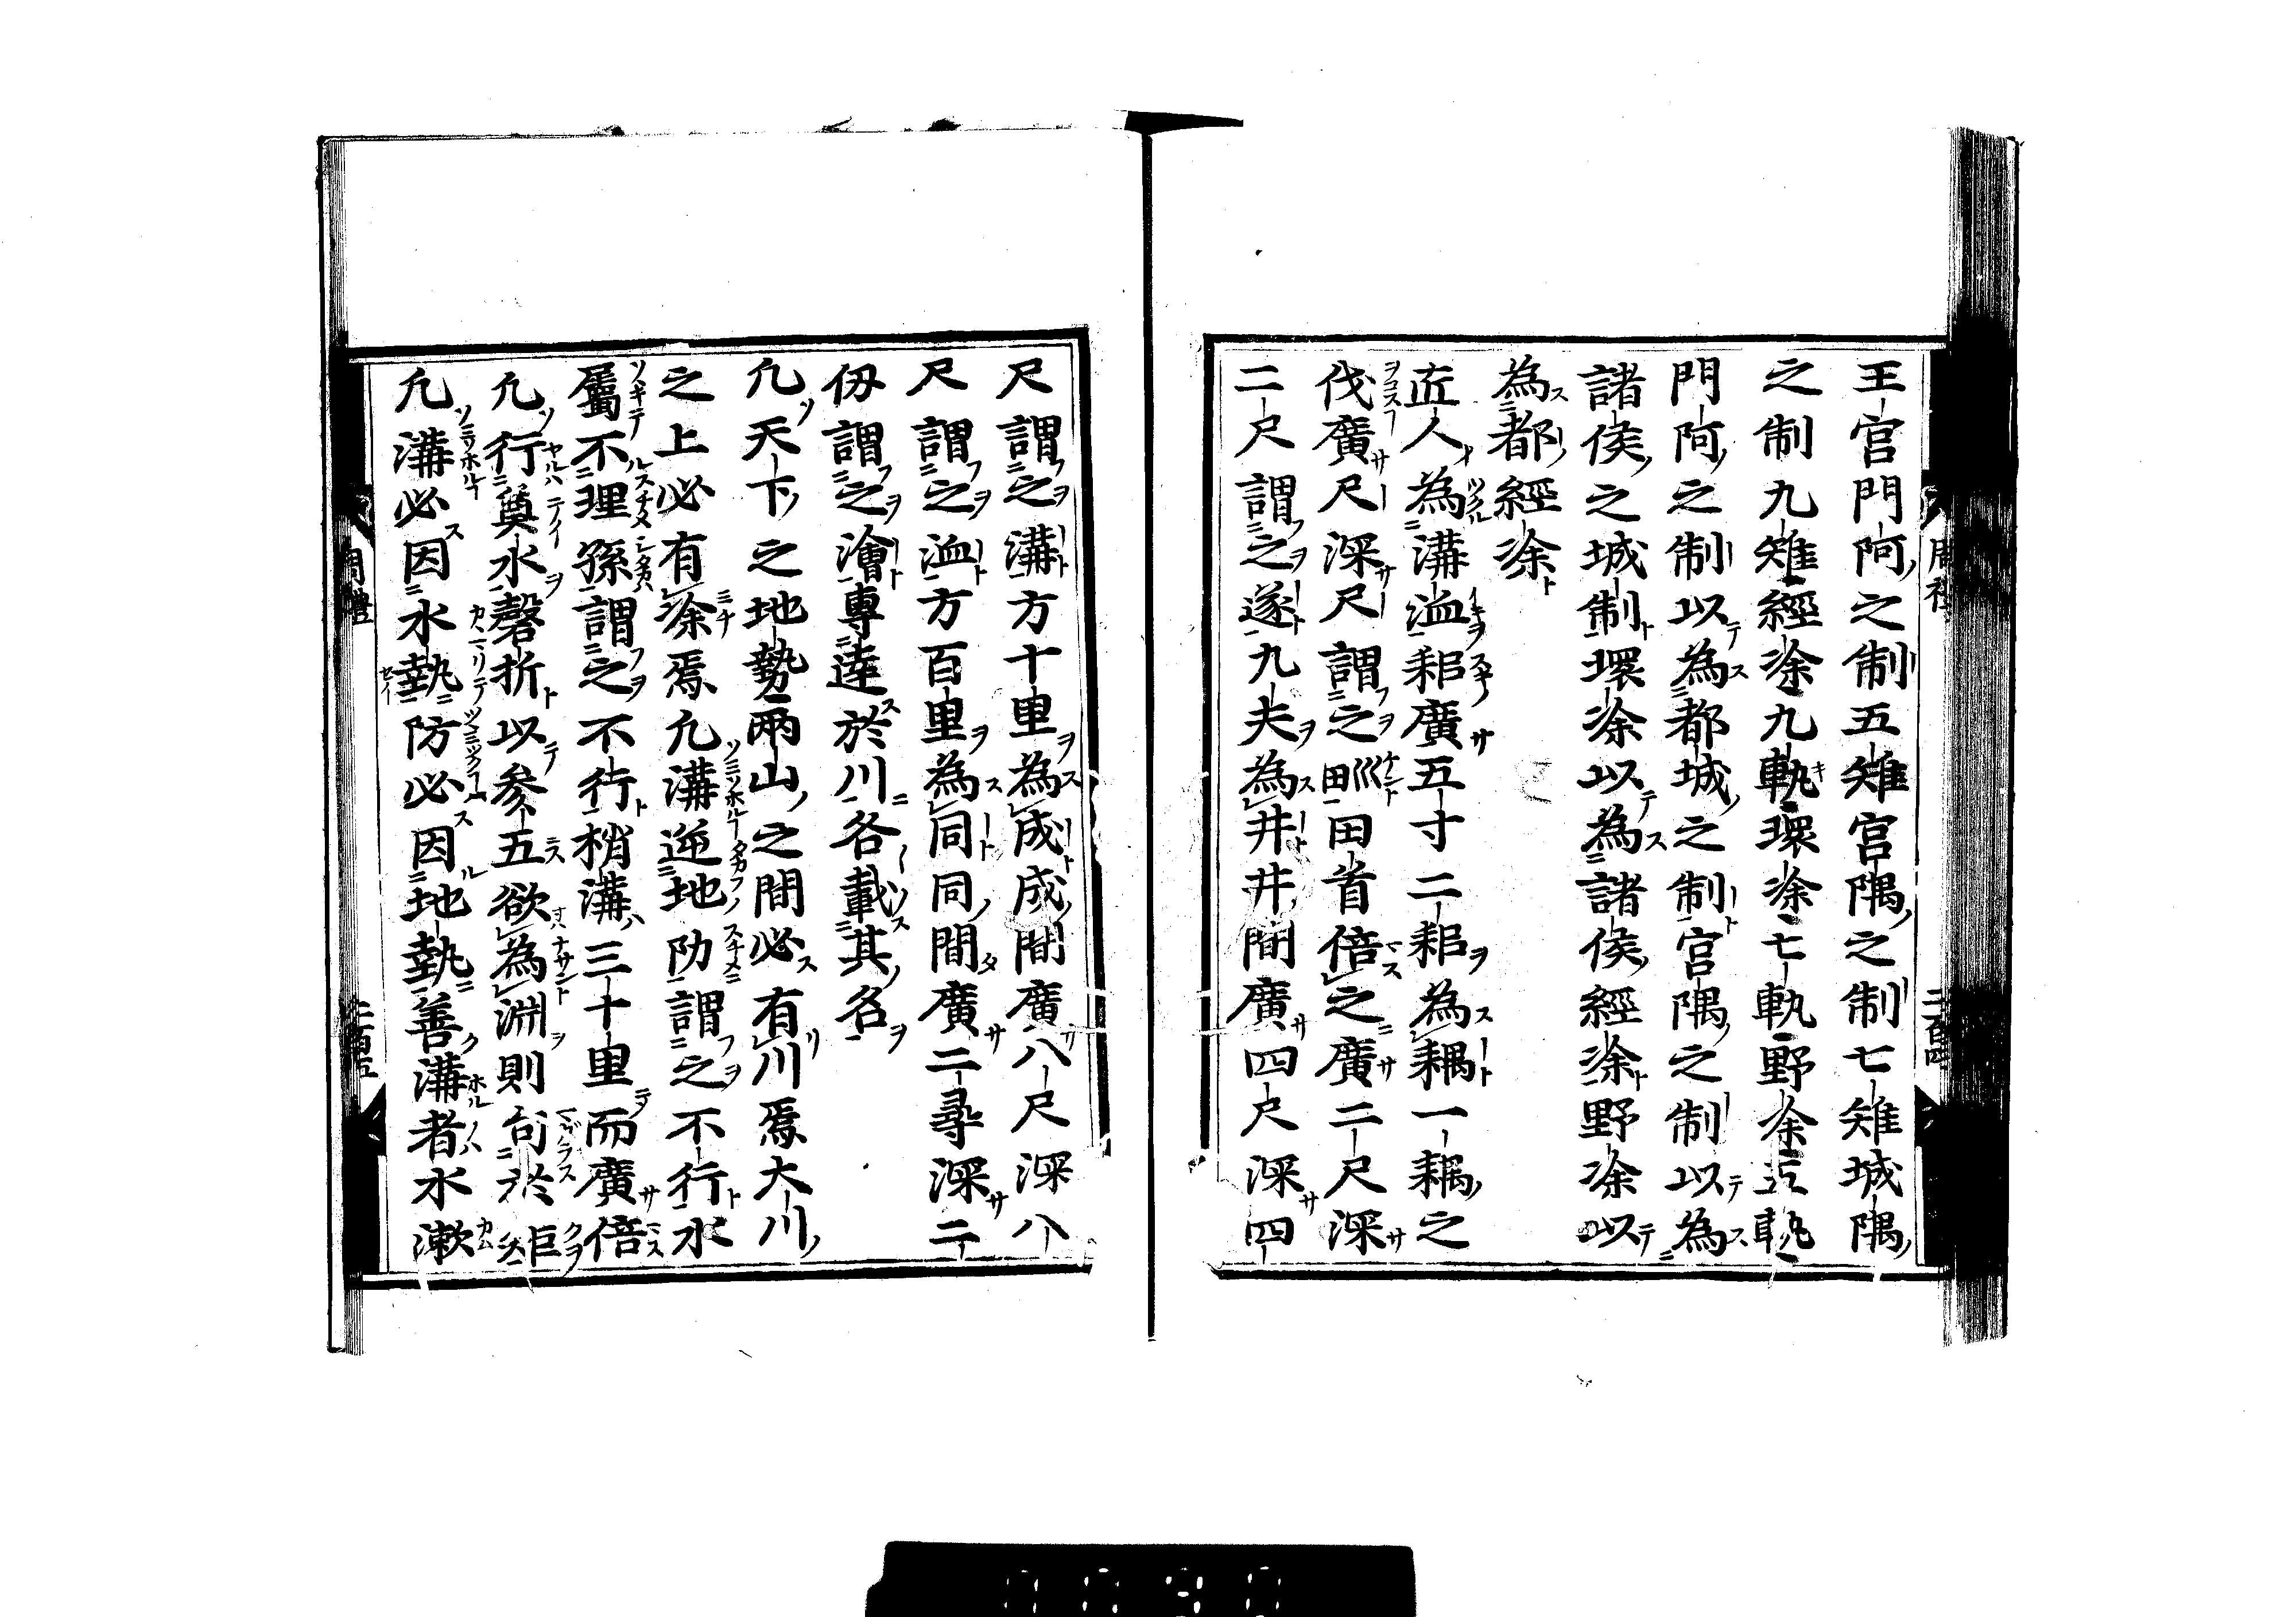 王宮門阿之制五雉宮隅之制七雉城隅
之制九雉經涂九軌環涂七軌野涂五軌
門阿之制以為都城之制宮隅之制以為
諸侯之城制環涂以為諸侯經涂野涂以
為都經涂
匠人為溝洫耜廣五寸二耜為耦一耦之
伐廣尺深尺謂之𤰕田首倍之廣二尺深
二尺謂之遂九夫為井井間廣四尺深四
尺謂之溝方十里為成成間廣八尺深八
尺謂之洫方百里為同同間廣二尋深二
仞謂之澮專達於川各載其名
凢天下之地勢兩山之間必有川焉大川
之上必有涂焉凢溝逆地阞謂之不行水
屬不理孫謂之不行梢溝三十里而廣倍
凢行奠水磬折以参五欲為淵則句於矩
凢溝必因水埶防必因地埶善溝者水漱
周禮